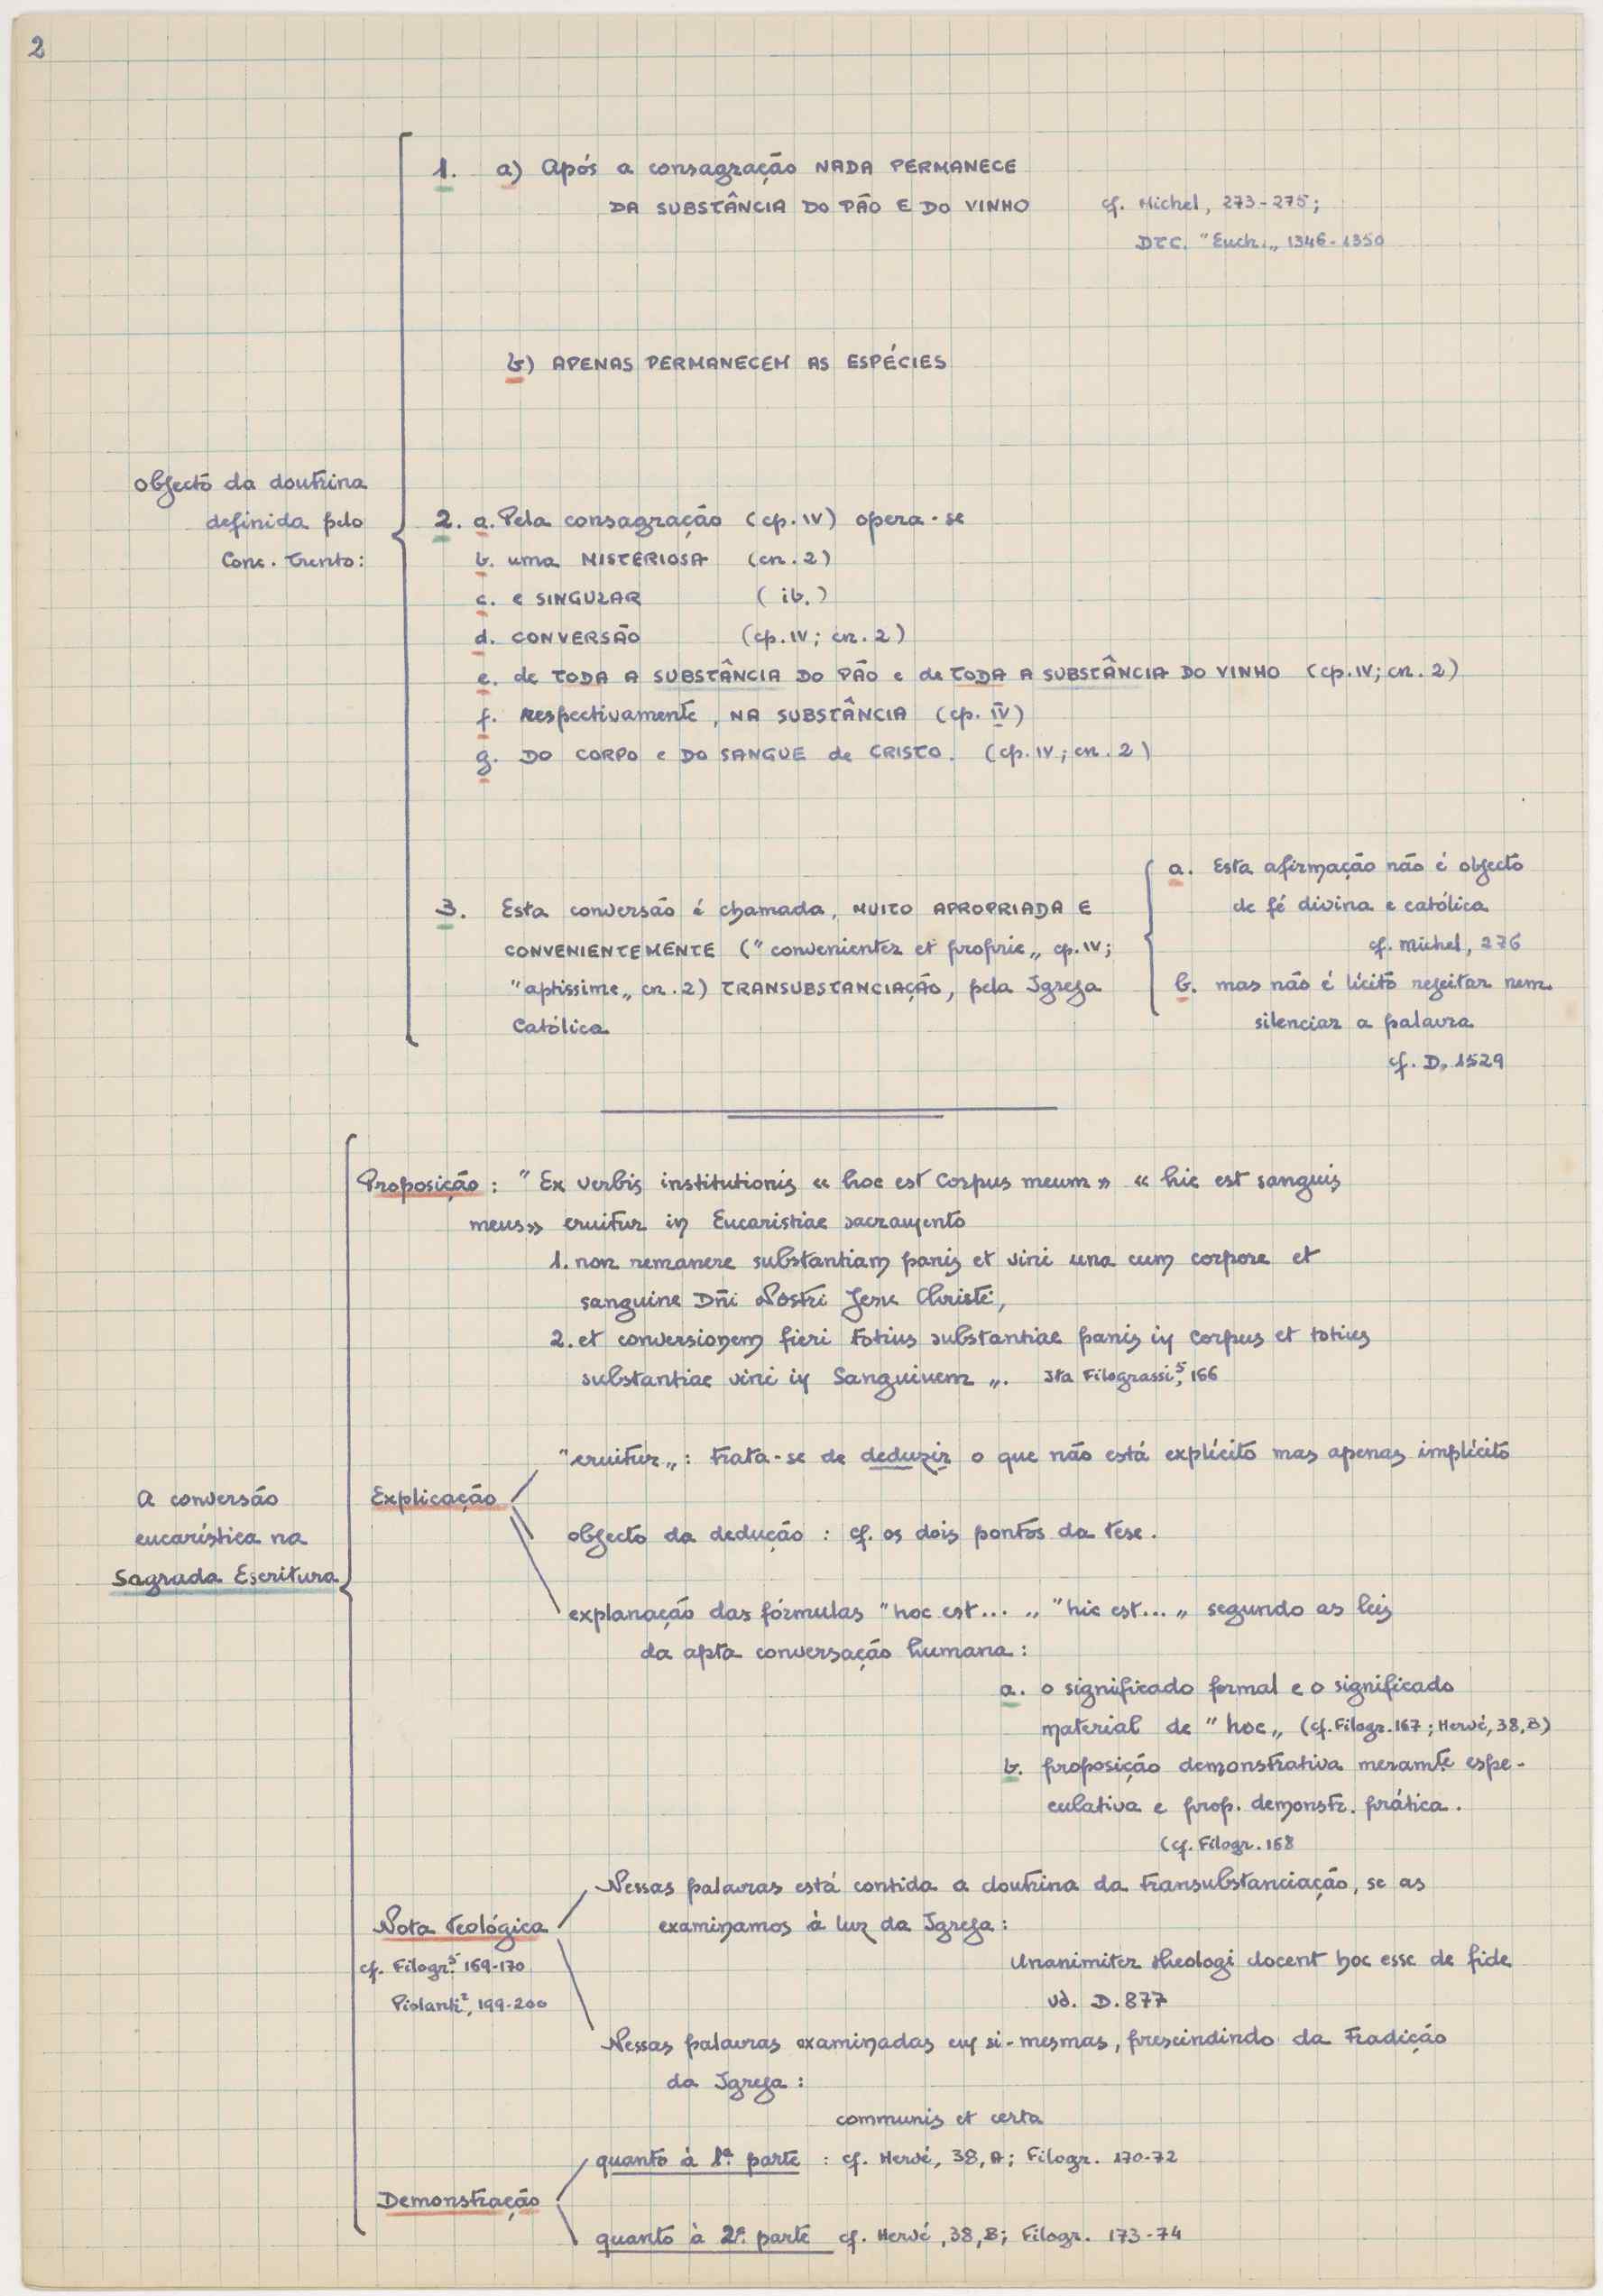 2
1. a) Após a consagração NADA PERMANECE
DA SUBSTÂNCIA DO PÃO E DO VINHO cf. Michel, 273-275;
DTC. "Euch.„ 1346-1350
b) APENAS PERMANECEM AS ESPÉCIES
Objecto da doutrina
definida pelo
Conc. Trento:
2. a. Pela consagração (cp. IV) opera-se
b. uma MISTERIOSA (cn. 2)
c. e SINGULAR (ib.)
d. CONVERSÃO (cp. IV; cn. 2)
e. de TODA A SUBSTÂNCIA DO PÃO e de TODA A SUBSTÂNCIA DO VINHO (cp. IV; cn. 2)
f. respectivamente, NA SUBSTÂNCIA (cp. IV)
g. DO CORPO e DO SANGUE de CRISTO. (cp. IV; cn. 2)
3. Esta conversão é chamada, MUITO APROPRIADA E
CONVENIENTEMENTE ("convenienter et proprie„ cp. IV;
"aptissime„ cn. 2) TRANSUBSTANCIAÇÃO, pela Igreja
Católica
a. Esta afirmação não é objecto
de fé divina e católica
cf. Michel, 276
b. mas não é lícito rejeitar nem
silenciar a palavra
cf. D. 1529
A conversão
eucarística na
Sagrada Escritura
Proposição: "Ex verbis institutionis « hoc est Corpus meum » « hic est sanguis
meus» eruitur in Eucaristiae sacramento
1. non remanere substantiam panis et vini una cum corpore et
sanguine Dñi Nostri Jesu Christi,
2. et conversionem fieri totius substantiae panis in Corpus et totius
substantiae vini in Sanguinem „. Ita Filograssi⁵, 166
Explicação
"eruitur„: trata-se de deduzir o que não está explícito mas apenas implícito
objecto da dedução: cf. os dois pontos da tese.
explanação das fórmulas "hoc est... „ "hic est... „ segundo as leis
da apta conversação humana:
a. o significado formal e o significado
material de "hoc„ (cf. Filogr. 167; Hervé, 38, B)
b. proposição demonstrativa meramte espe-
culativa e prop. demonstr. prática.
(cf. Filogr. 168
Nota Teológica
cf. Filogr.⁵ 169-170
Piolanti², 199-200
Nessas palavras está contida a doutrina da transubstanciação, se as
examinamos à luz da Igreja:
Unanimiter theologi docent hoc esse de fide
vd. D. 877
Nessas palavras examinadas em si-mesmas, prescindindo da Tradição
da Igreja:
communis et certa
Demonstração
quanto à 1ª. parte : cf. Hervé, 38, A; Filogr. 170-72
quanto à 2ª. parte cf. Hervé, 38, B; Filogr. 173-74